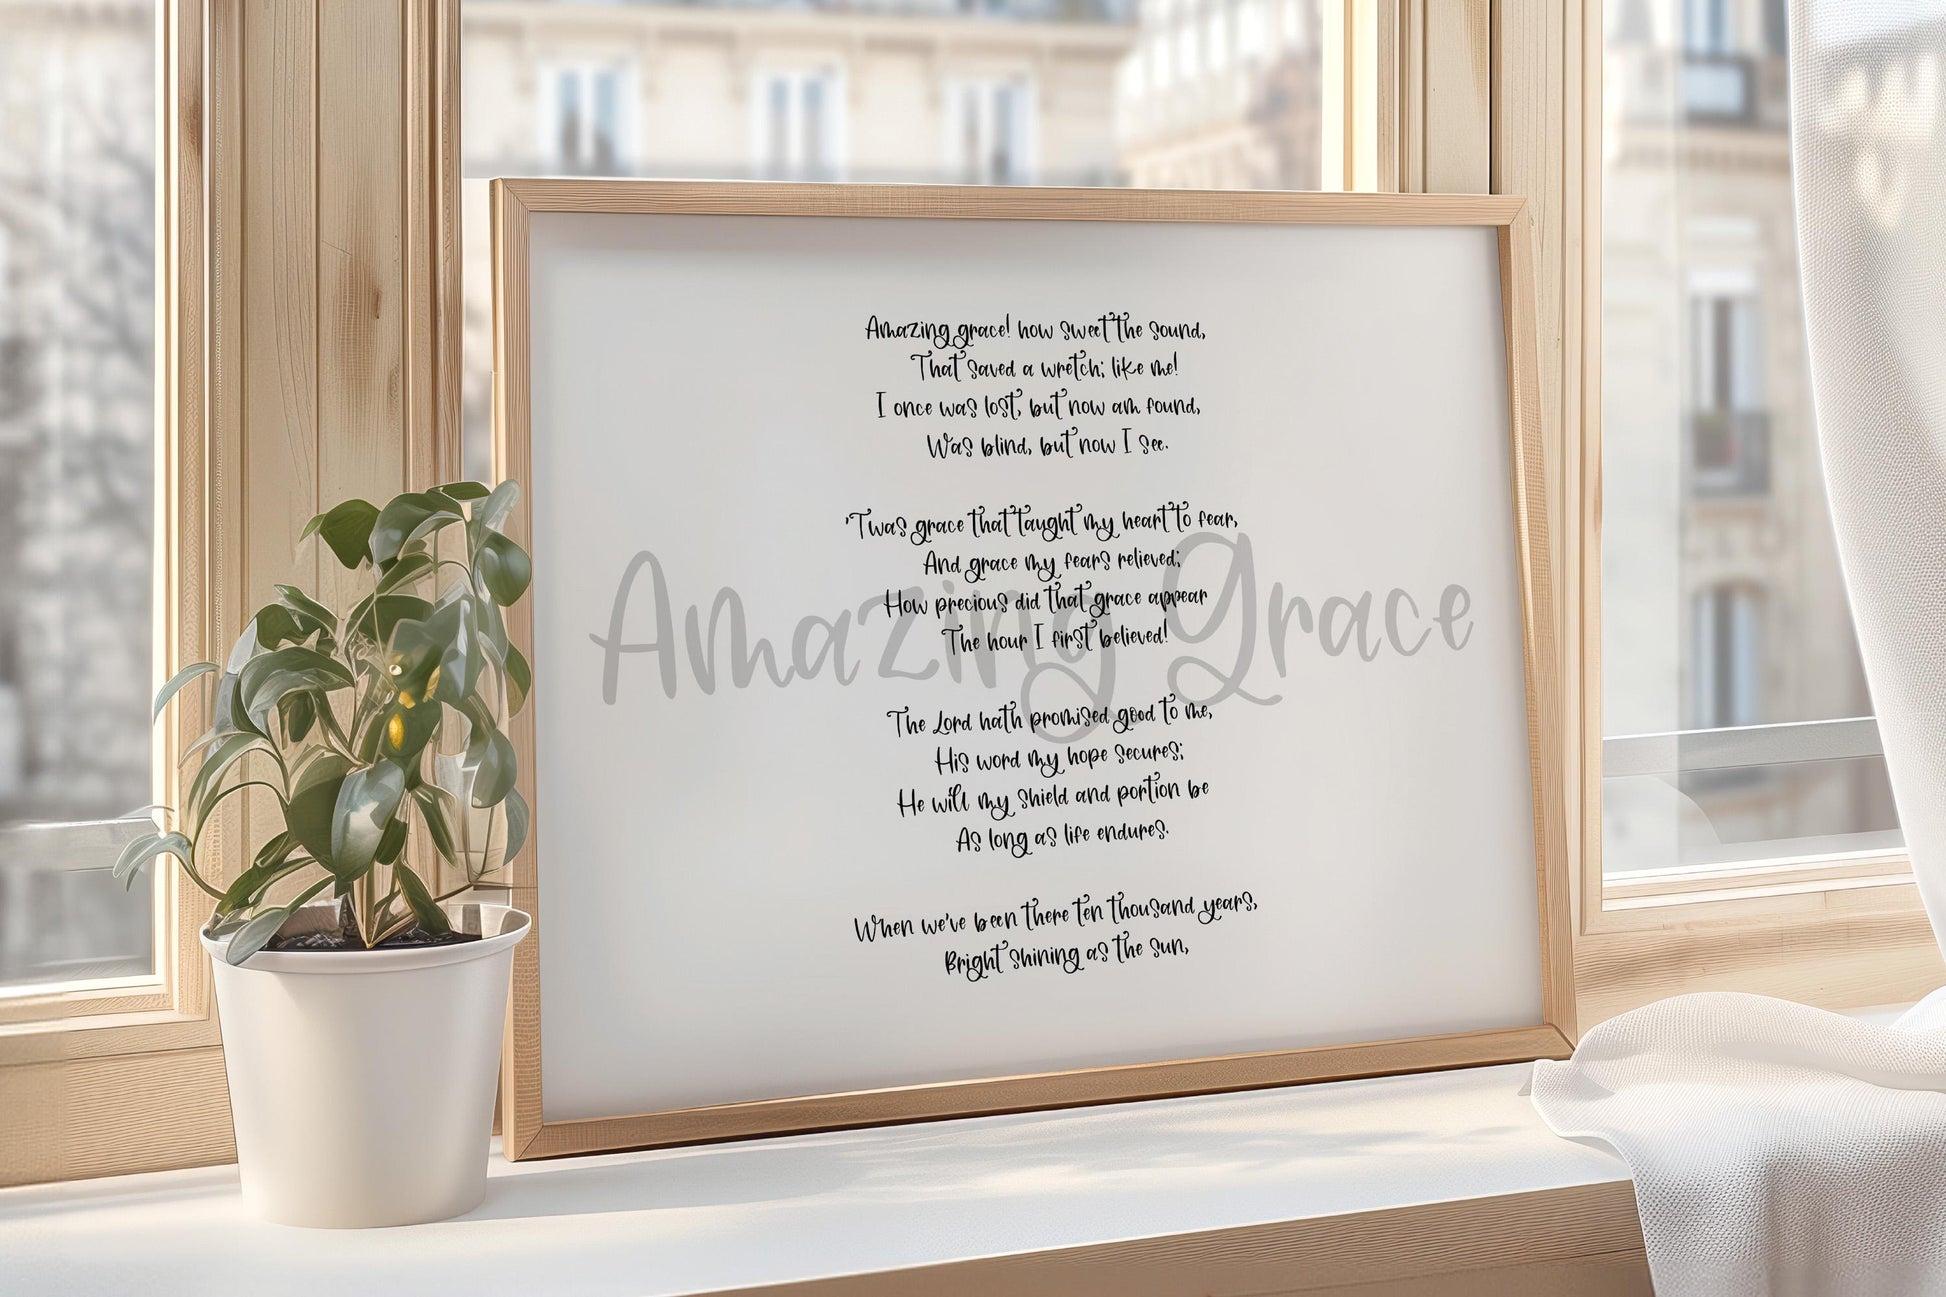 Amazing grace! how sweet the sound,
That saved a wretch; like me!
I once was lost, but now am found,
Was blind, but now I see.
'Twas grace that taught my heart to fear,
And grace my fears relieved;
How precious did that grace appear
The hour I first believed!
Amazing Grace
The Lord hath promised good to me,
His word my hope secures;
He will my shield and portion be
As long as life endures.
When we've been there ten thousand years,
Bright shining as the sun,